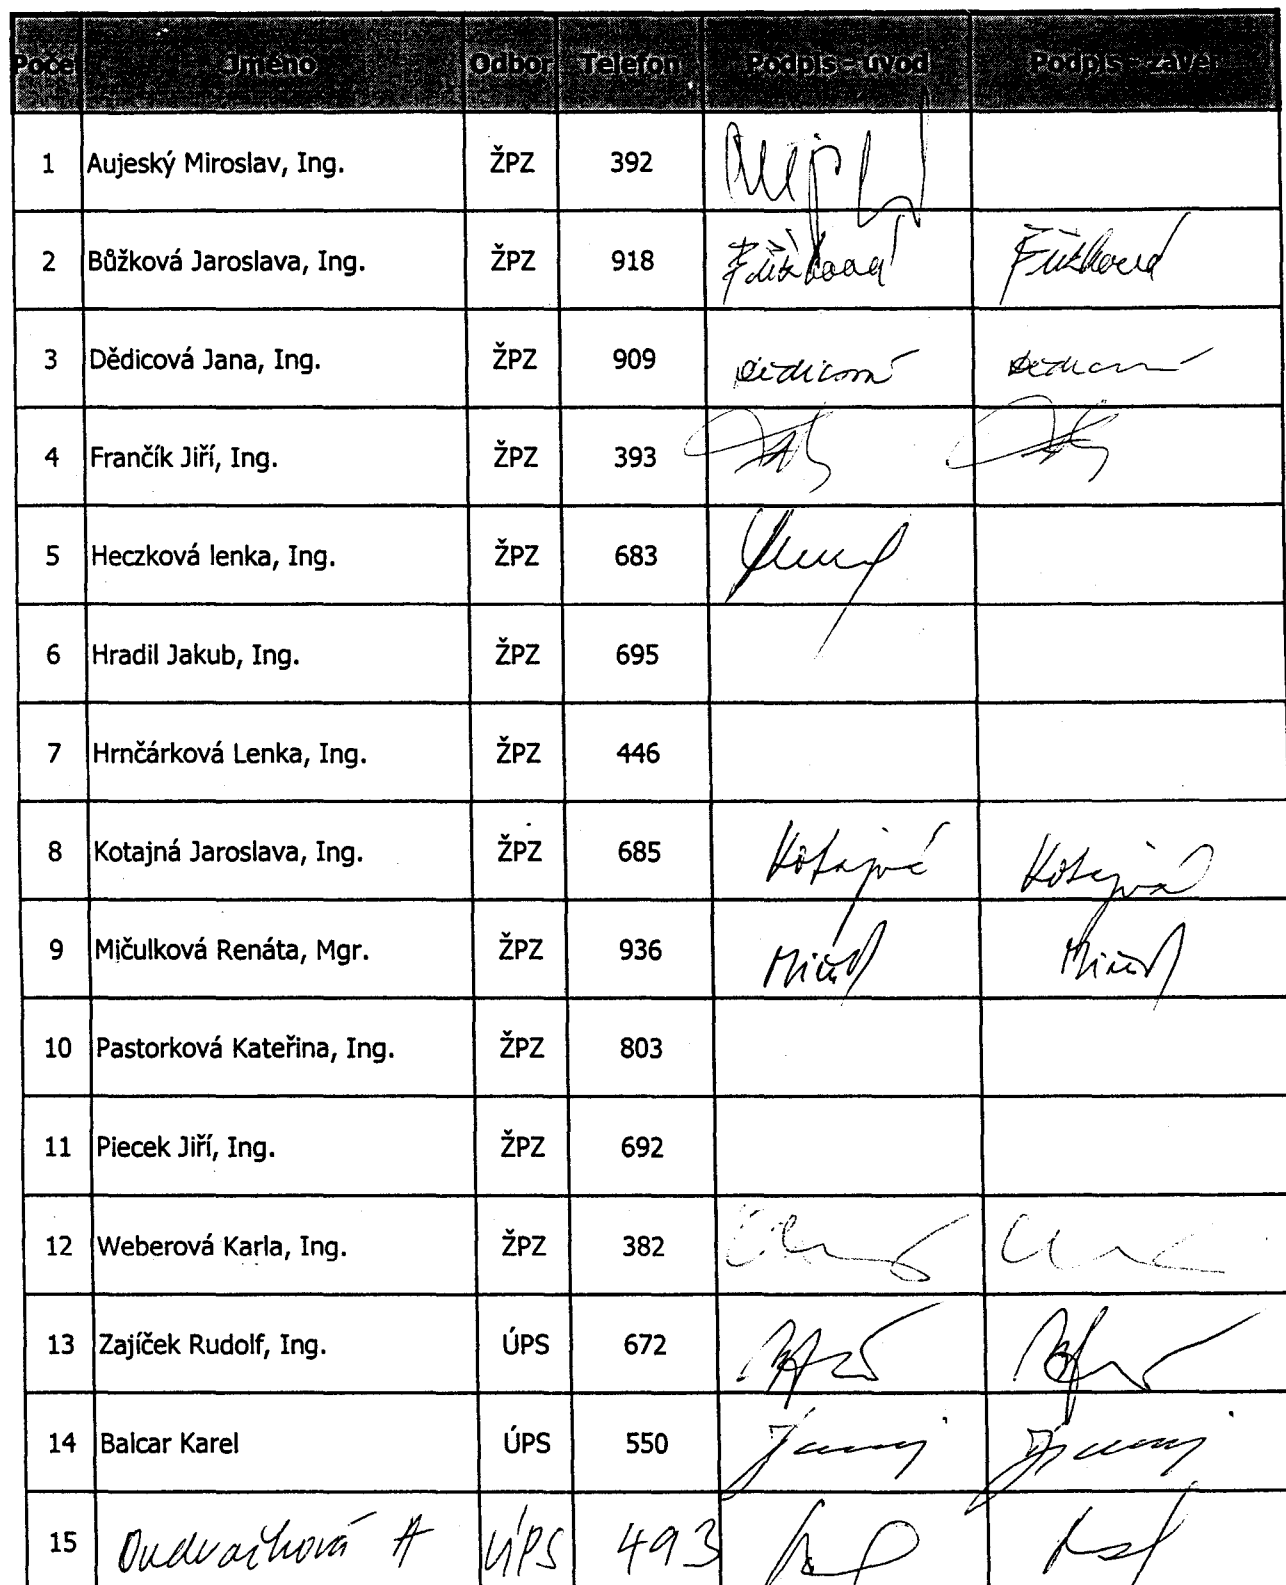 Počet Jméno Odbor Telefon Podpis - úvod Podpis - závěr
1 Aujeský Miroslav, Ing. ŽPZ 392
2 Bůžková Jaroslava, Ing. ŽPZ 918
3 Dědicová Jana, Ing. ŽPZ 909 Dědicová Dědicová
4 Frančík Jiří, Ing. ŽPZ 393
5 Heczková lenka, Ing. ŽPZ 683
6 Hradil Jakub, Ing. ŽPZ 695
7 Hrnčárková Lenka, Ing. ŽPZ 446
8 Kotajná Jaroslava, Ing. ŽPZ 685 Kotajná Kotajná
9 Mičulková Renáta, Mgr. ŽPZ 936
10 Pastorková Kateřina, Ing. ŽPZ 803
11 Piecek Jiří, Ing. ŽPZ 692
12 Weberová Karla, Ing. ŽPZ 382
13 Zajíček Rudolf, Ing. ÚPS 672
14 Balcar Karel ÚPS 550
15 Ondračková A ÚPS 493